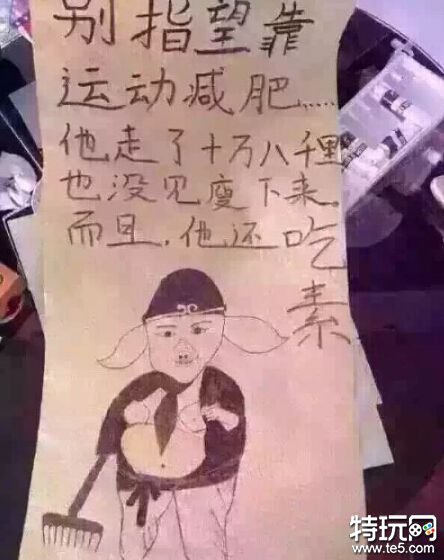 别指望靠
运动减肥……
他走了十万八千里
也没见瘦下来.
而且.他还吃素
特玩网
www.te5.com